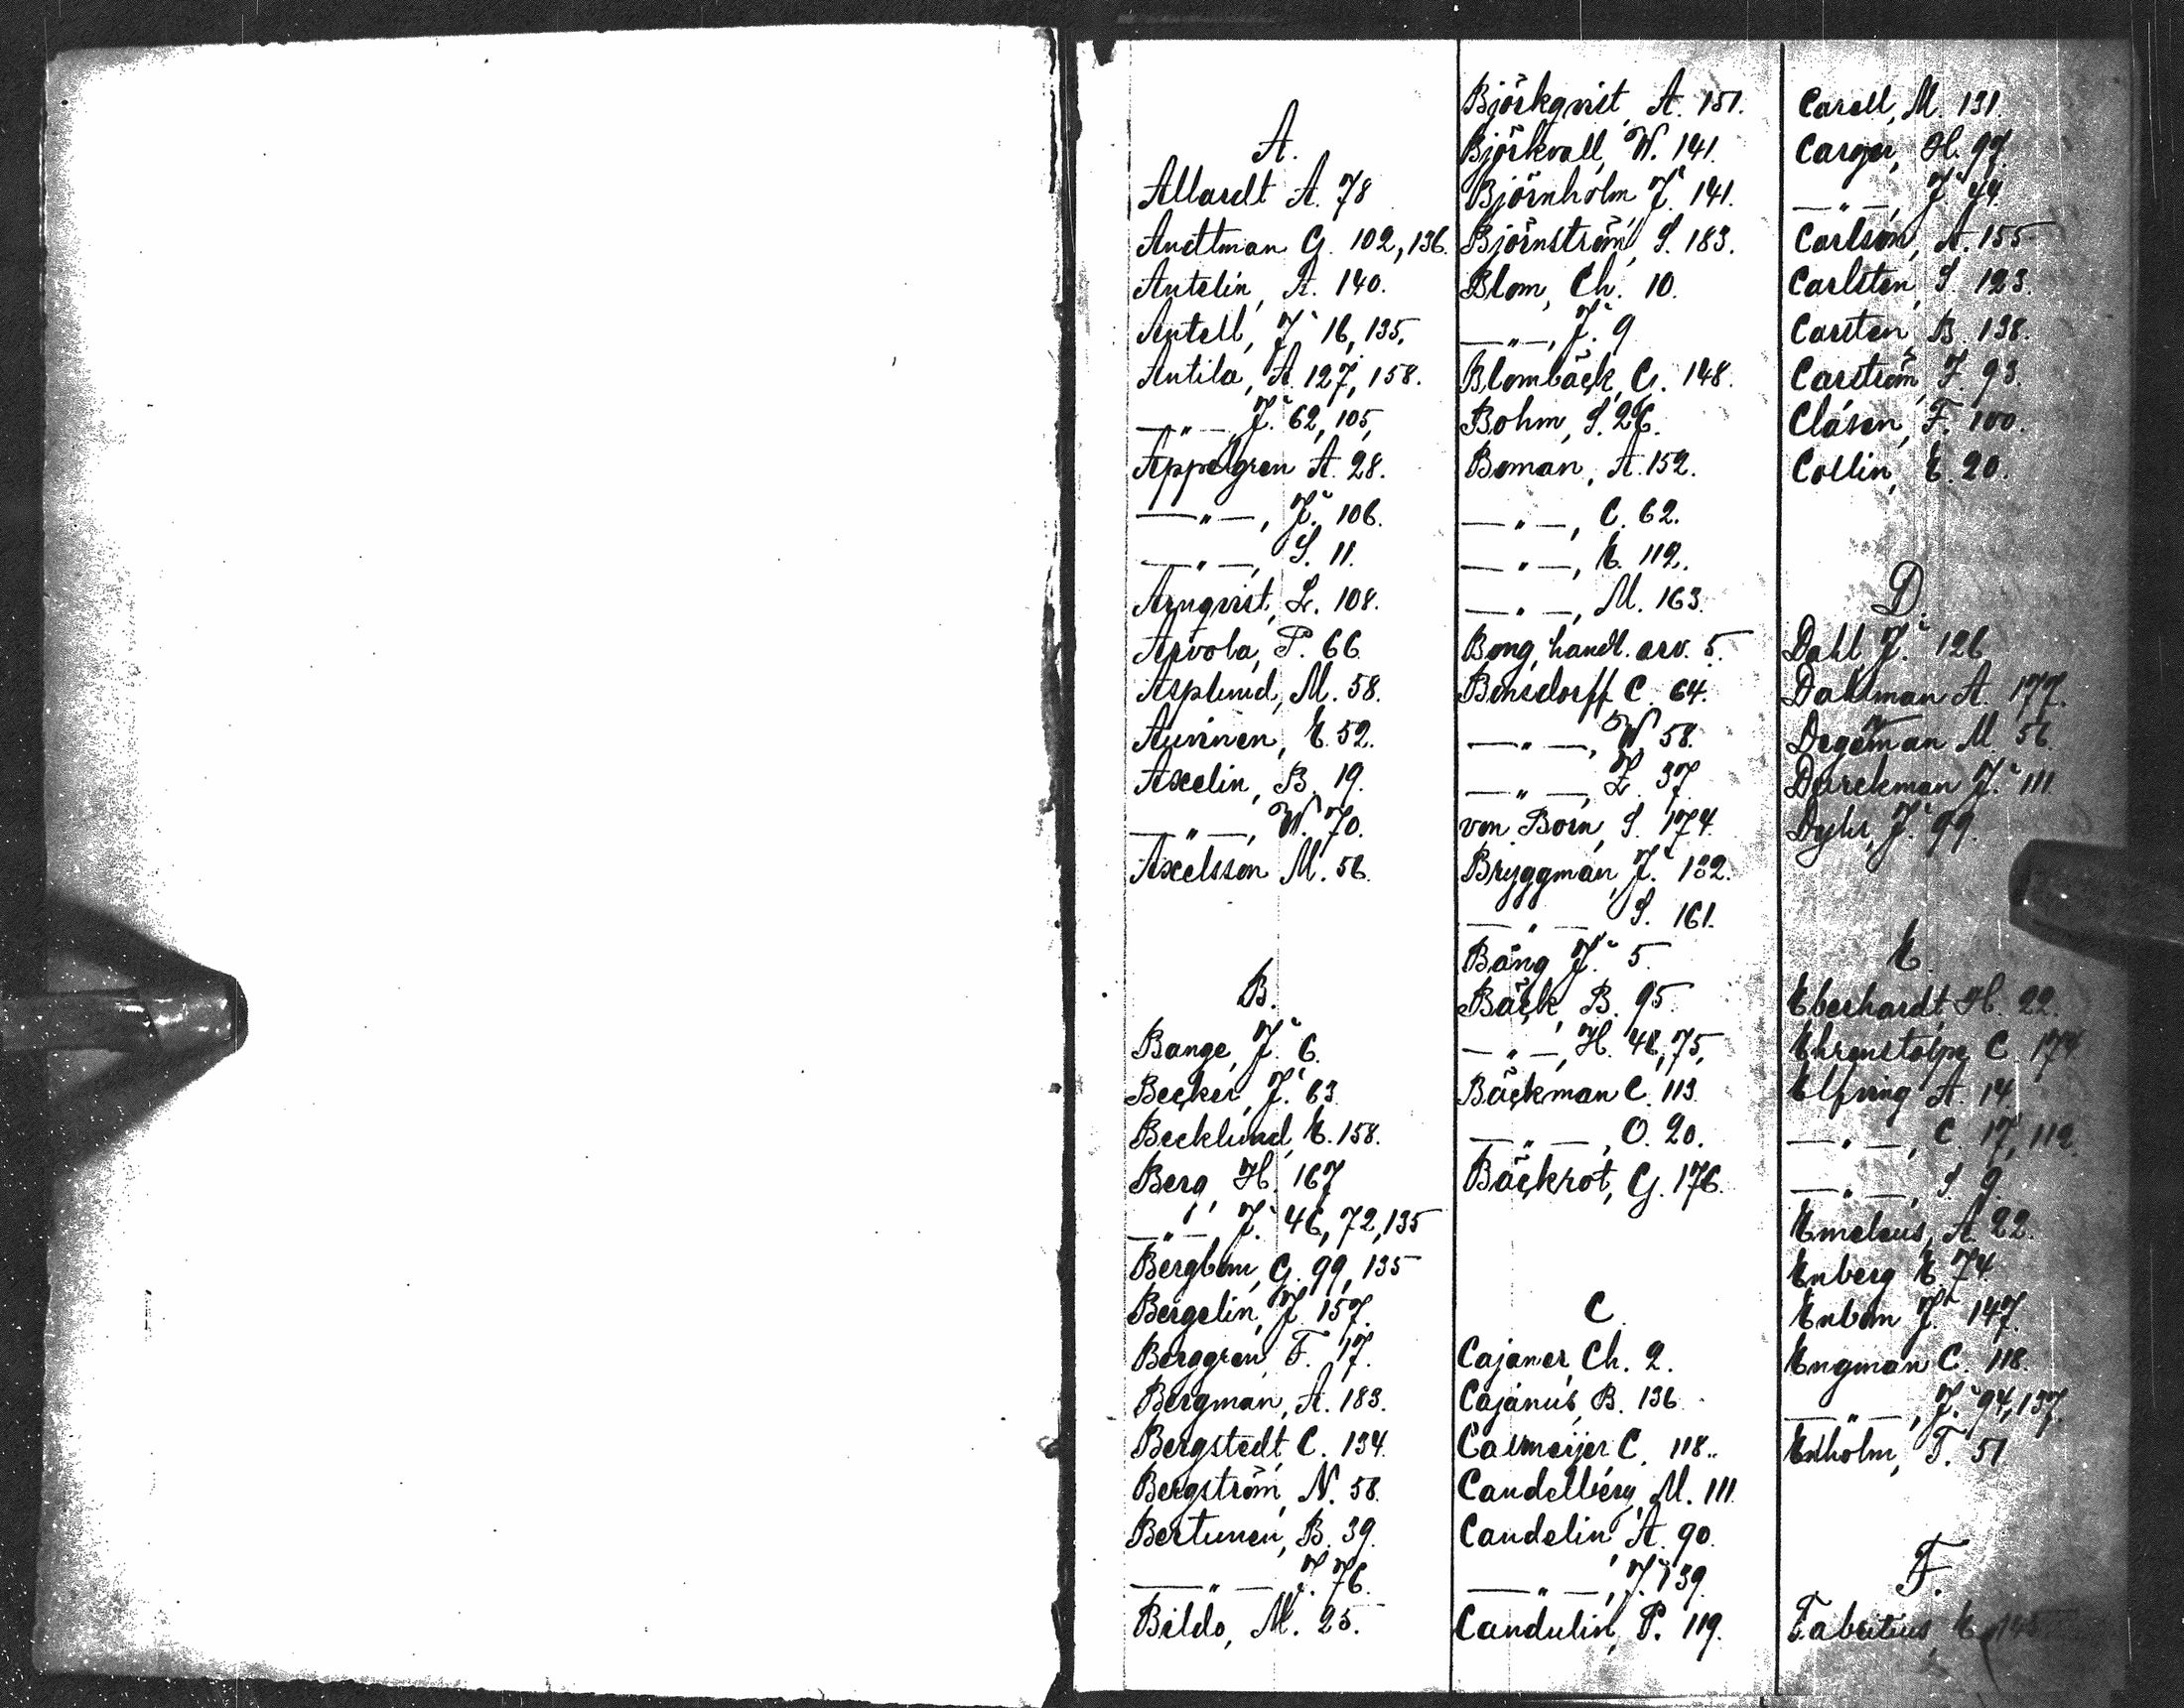 A.
Allardt A. 78
Andtman G. 102, 136.
Antelin, A. 140.
Antell, J. 16, 135.
Antila, A. 127, 158.
—„—, J. 62, 105,
Appelgren A. 28.
—„—, J. 106.
—„—, S. 11.
Arnqvist, L. 108.
Arvola, P. 66.
Asplund, M. 58.
Auvinen, E. 52.
Axelin, B. 19.
—„—, W. 70.
Axelsson M. 56.
B.
Bange, J. 6.
Becker, J. 63
Becklund, E. 158.
Berg, H. 167
—„— J. 46, 72, 135
Bergbom, G. 99, 135
Bergelin, J. 157.
Berggren, F. 17.
Bergman, A. 183.
Bergstedt, C. 134.
Bergström, N. 58.
Bertunen, B. 39.
—„— J. 76.
Bildo, M. 25.
Björkqvist, A. 151.
Björkvall, W. 141.
Björnholm J. 141.
Björnström, S. 183.
Blom, Ch. 10.
—„—, J. 9
Blombäck, G. 148.
Bohm, S. 26.
Boman, A. 152.
—„—, C. 62.
—„—, E. 112.
—„—, M. 163.
Bong, handl. arv. 5.
Bonsdorff C. 64.
—„—, W. 58.
—„—, Z. 37.
von Born, S. 174.
Bryggman, J. 132.
—„— S. 161.
Bång J. 5.
Bäck, B. 95.
—„—, H. 48, 75,
Bäckman C. 113.
—„—, O. 20.
Bäckrot, G. 176.
C.
Cajaner, Ch. 2.
Cajanus, B. 136.
Calmeijer C. 118.
Candelberg, M. 111.
Candelin A. 90.
—„—, J. 139.
Candulin, P. 119.
Carell, M. 131.
Carger, H. 99.
—„—, J. 44.
Carlson, A. 155
Carlsten, S. 123.
Carsten, B. 138.
Carström, J. 93.
Clásen, F. 100.
Collin, E. 20.
D.
Dahl J. 126
Dahlman A. 177.
Degerman M. 56.
Durchman J. 111
Dyhr, J. 99.
E.
Eberhardt H. 22.
Ehrenstolpe C. 174.
Elfving A. 14.
—„—, C. 17, 112.
—„—, S. 9.
Emeleus, A. 22.
Enberg E. 74.
Enbom J. 147.
Engman C. 118.
—„—, J. 94, 137.
Enholm, T. 51.
F.
Fabritius, E. 145